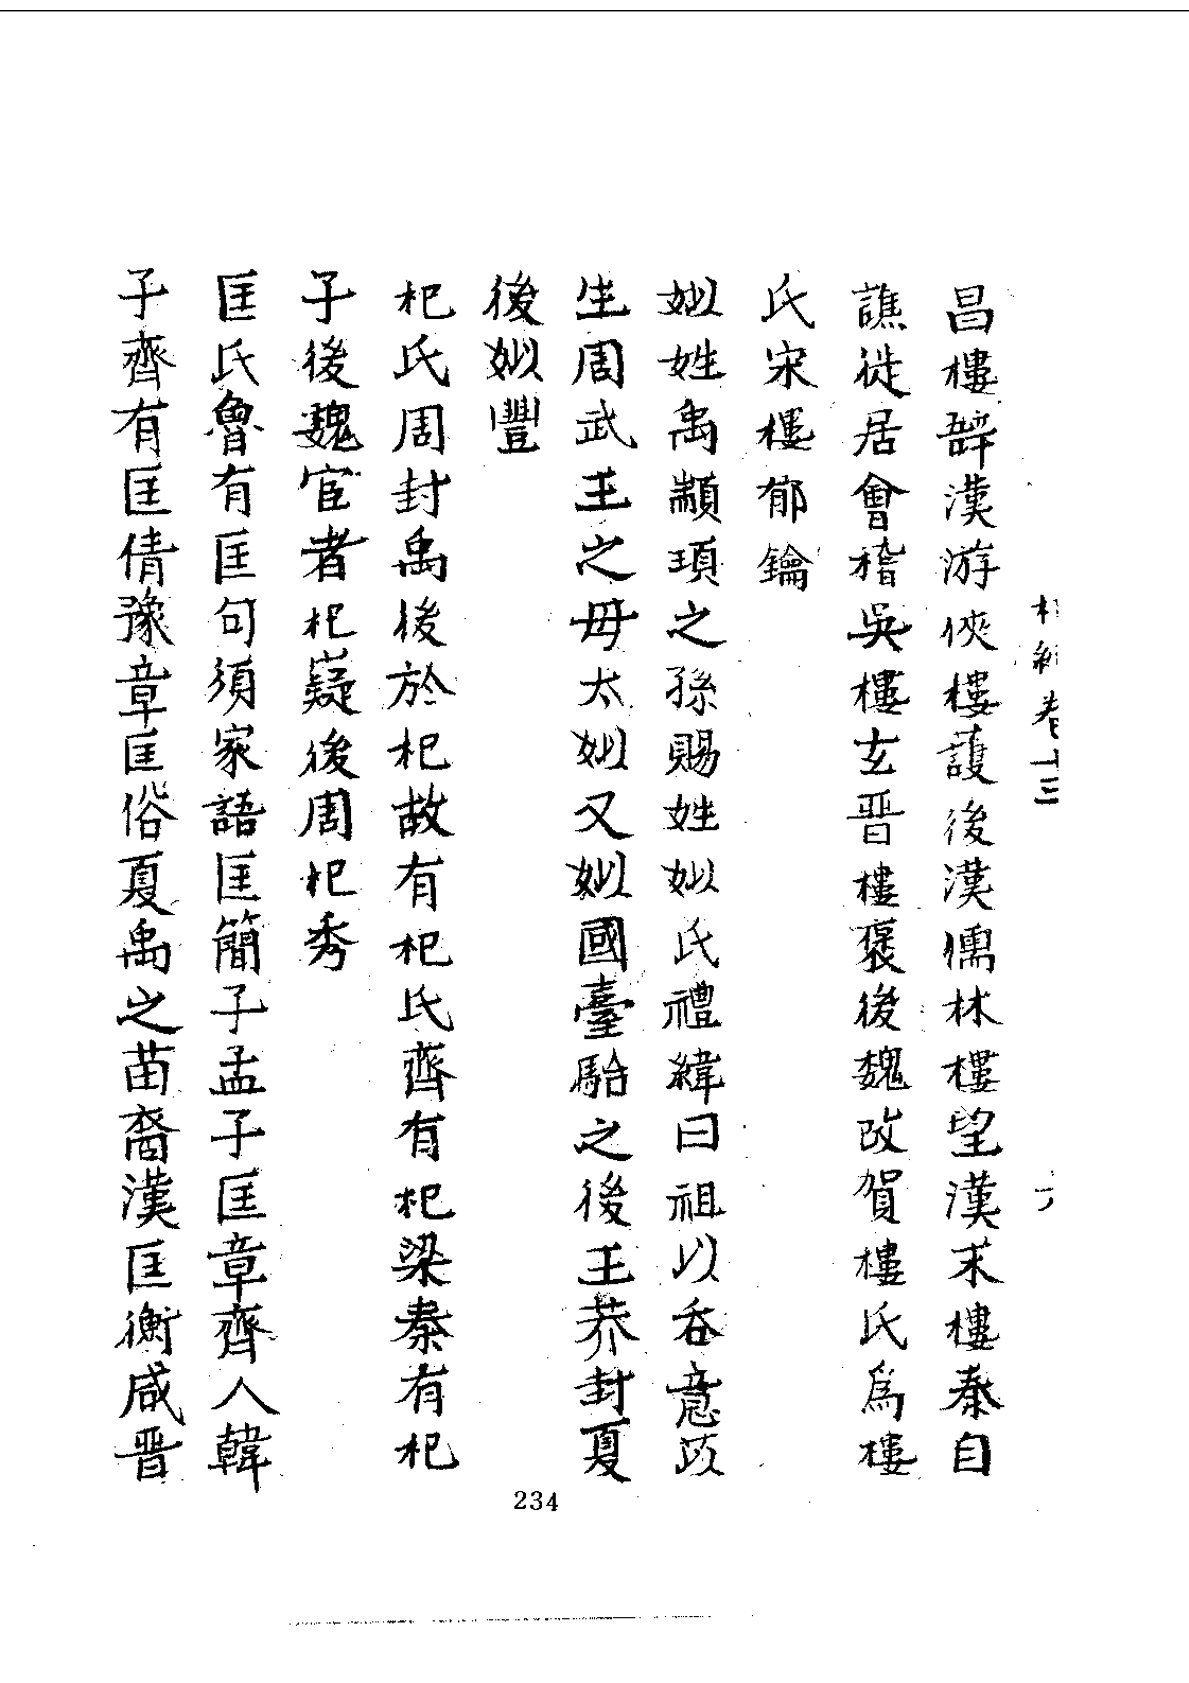 卷十三
昌樓辥漢游俠樓護後漢儒林樓望漢末樓秦自
譙徙居會稽吳樓玄晋樓褒後魏改賀樓氏爲樓
氏宋樓郁鑰
姒姓禹顓頊之孫賜姓姒氏禮緯曰祖以吞意苡
生周武王之毋太姒又姒國臺駘之後王莽封夏
後姒豐
杞氏周封禹後於杞故有杞氏齊有杞梁秦有杞
子後魏宦者杞嶷後周杞秀
匡氏魯有匡句須家語匡簡子孟子匡章齊人韓
子齊有匡倩豫章匡俗夏禹之苗裔漢匡衡咸晋
234